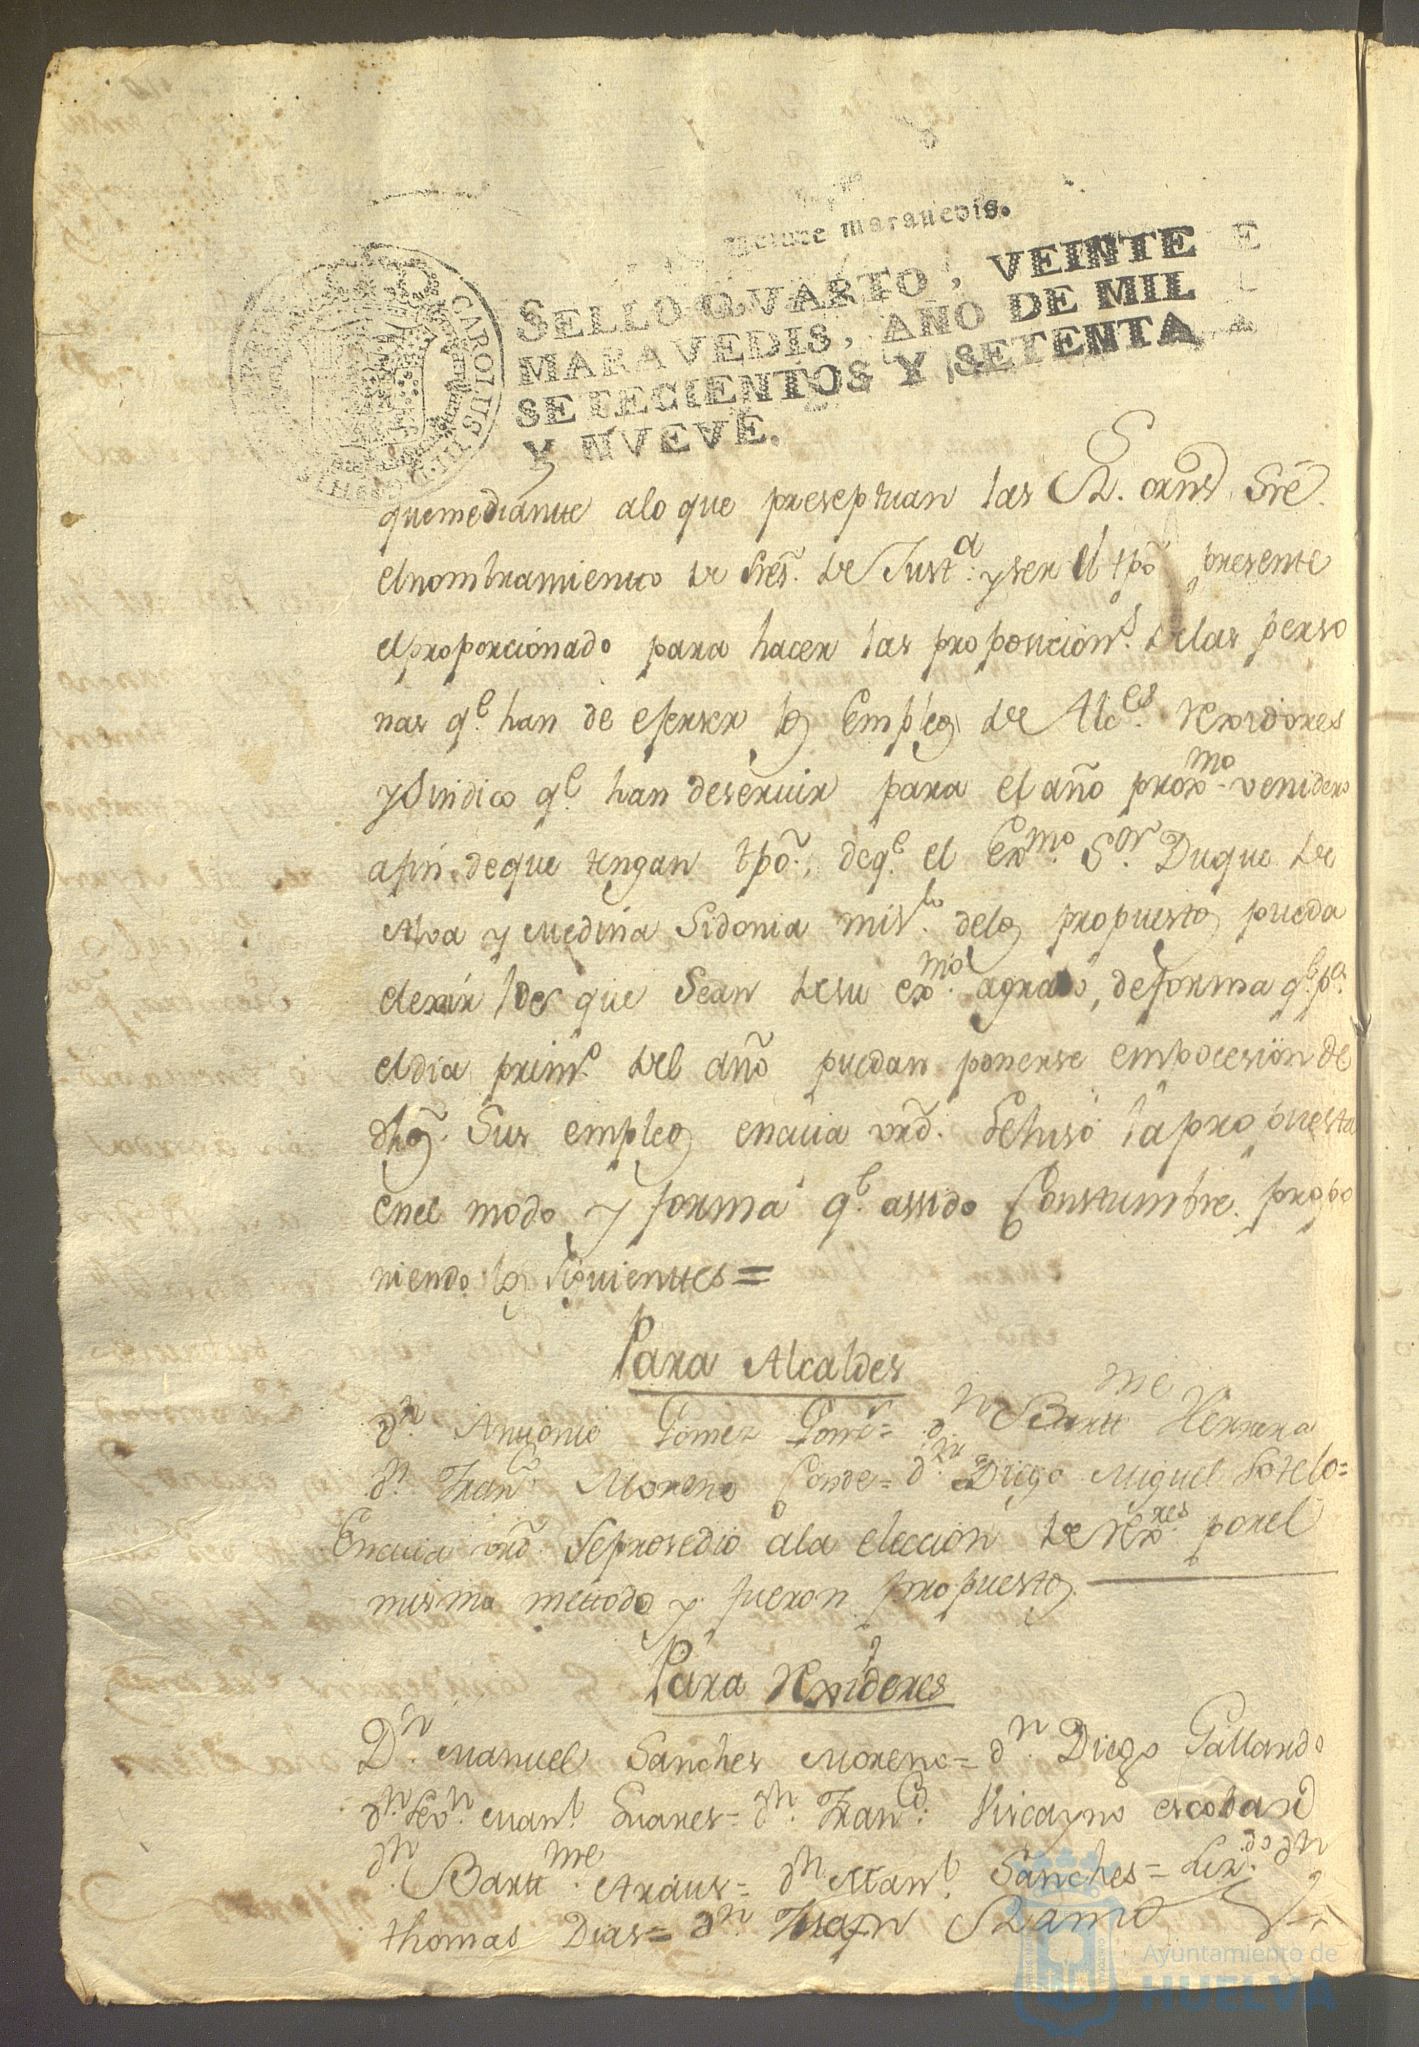 maravedis.
SELLO QVARTO, VEINTE
MARAVEDIS, AÑO DE MIL
SETECIENTOS Y SETENTA
Y NVEVE.
CAROLUS
quemediantte alo que preseptuan las R. ornd Sre.
elnombramientto de Sres. de Justa. yser el tpo presente
elproporcionado para hacer las proposicions. delas perso
nas qe. han de eserser los Empleos de Alces. Rexidores
ySindico qe. han deseruir para el año proxmo. venidero
afin deque tengan tpo. deqe. el Exmo. Sor. Duque de
Alva y Medina Sidonia delos propuestos pueda
elexir los que Sean desu agrado, deforma qe. pa.
eldia primo. del año puedan ponerse empocesion de
dhos. Sus empleos enauia ord. Sehiso la propuesta
enel modo y forma qe. assido Constumbre. propo
niendo los Siguienttes =
Para Alcaldes
dn. Anttonio Gomez = dn. Barttme Herrera
dn. Franco. Moreno Conde = dn. Diego Miguel Sotelo =
Enauia ord. Seprosedio ala eleccion de Rexres. porel
misma mettodo y fueron propuestos.
Para Rexideres
Dn. Manuel Sanches Moreno = dn. Diego Gallardo
dn. Manl. Suares = dn. Franco. Viscayno escobar
dn. Barttme. Araus = dn. Manl. Sanches = Lizdo. dn
thomas Dias = dn. Ramos
Ayuntamiento de
HUELVA